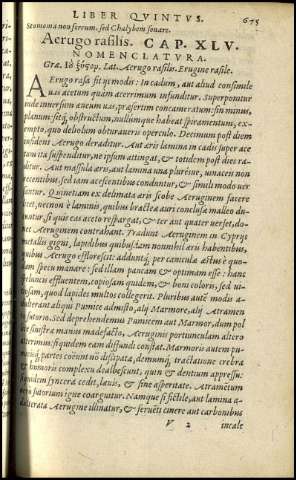 LIBER QVINTVS. 675
Stomoma non ferrum, sed Chalybem sonare.
Aerugo rasilis. CAP. XLV.
NOMENCLATURA.
Lat. Aerugo rasilis. Erugine rasile.
AErugo rasa fit ijs modis: In cadum, aut aliud consimile
uas acetum quàm acerrimum infunditur. Superponitur
inde inuersum æneum uas, præsertim concameratum: sin minus,
planum: sitq; obstructum, nullumque habeat spiramentum, ex-
empto, quo deliolum obturaueris operculo. Decimum post diem
Aerugo deraditur. Aut æris lamina in cadis super ace
tum ita suspenditur, ne ipsum attingat, & totidem post dies ra-
ditur. Aut massula æris, aut lamina una pluresue, uinaceis non
recentibus, sed iam acescentibus conduntur, & simili modo uer
Quinetiam ex delimata æris scobe Aeruginem facere
licet, necnon è laminis, quibus bractea auri conclusa malleo di-
si quis eas aceto respargat, & ter aut quater uerset, do-
nec Aeruginem contrahant. Tradunt Aeruginem in Cyprijs
metallis gigni, lapidibus quibusdam nonnihil æris habentibus,
Aerugo efflorescit: adduntq; per canicula æstus è quo-
dam specu manare: sed illam paucam & optimam esse: hanc
effluentem, copiosam quidem, & boni coloris, sed ui-
tiosam, quod lapides multos collegerit. Pluribus autē modis a-
dulterant alij Pumice admisto, alij Marmore, alij Atramen
to sutorio. Sed deprehendemus Pumicem aut Marmor, dum pol
lex sinistra manus madefacto, Aeruginis portiunculam altero
fiquidem eam diffundi constat. Marmoris autem pu-
micisq; partes coëunt nō dissipatæ, demumq; tractatione crebra
& humoris complexu dealbescunt, quin & dentium appressu:
siquidem syncera cedit, læuis, & sine asperitate. Atramētum
sutorium igne coarguitur. Namque si fictile, aut lamina a-
dulterata Aerugine illinatur, & feruēti cinere aut carbonibus
V 2 incale